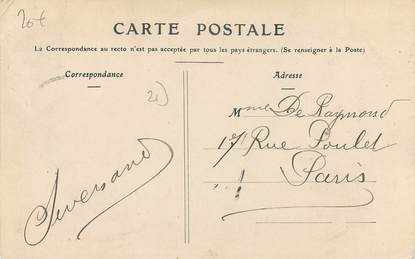 20€
CARTE POSTALE
La Correspondance au recto n'est pas acceptée par tous les pays étrangers. (Se renseigner à la Poste)
Correspondance
Adresse
Mme De Raymond
17 Rue Poulet
Paris
!